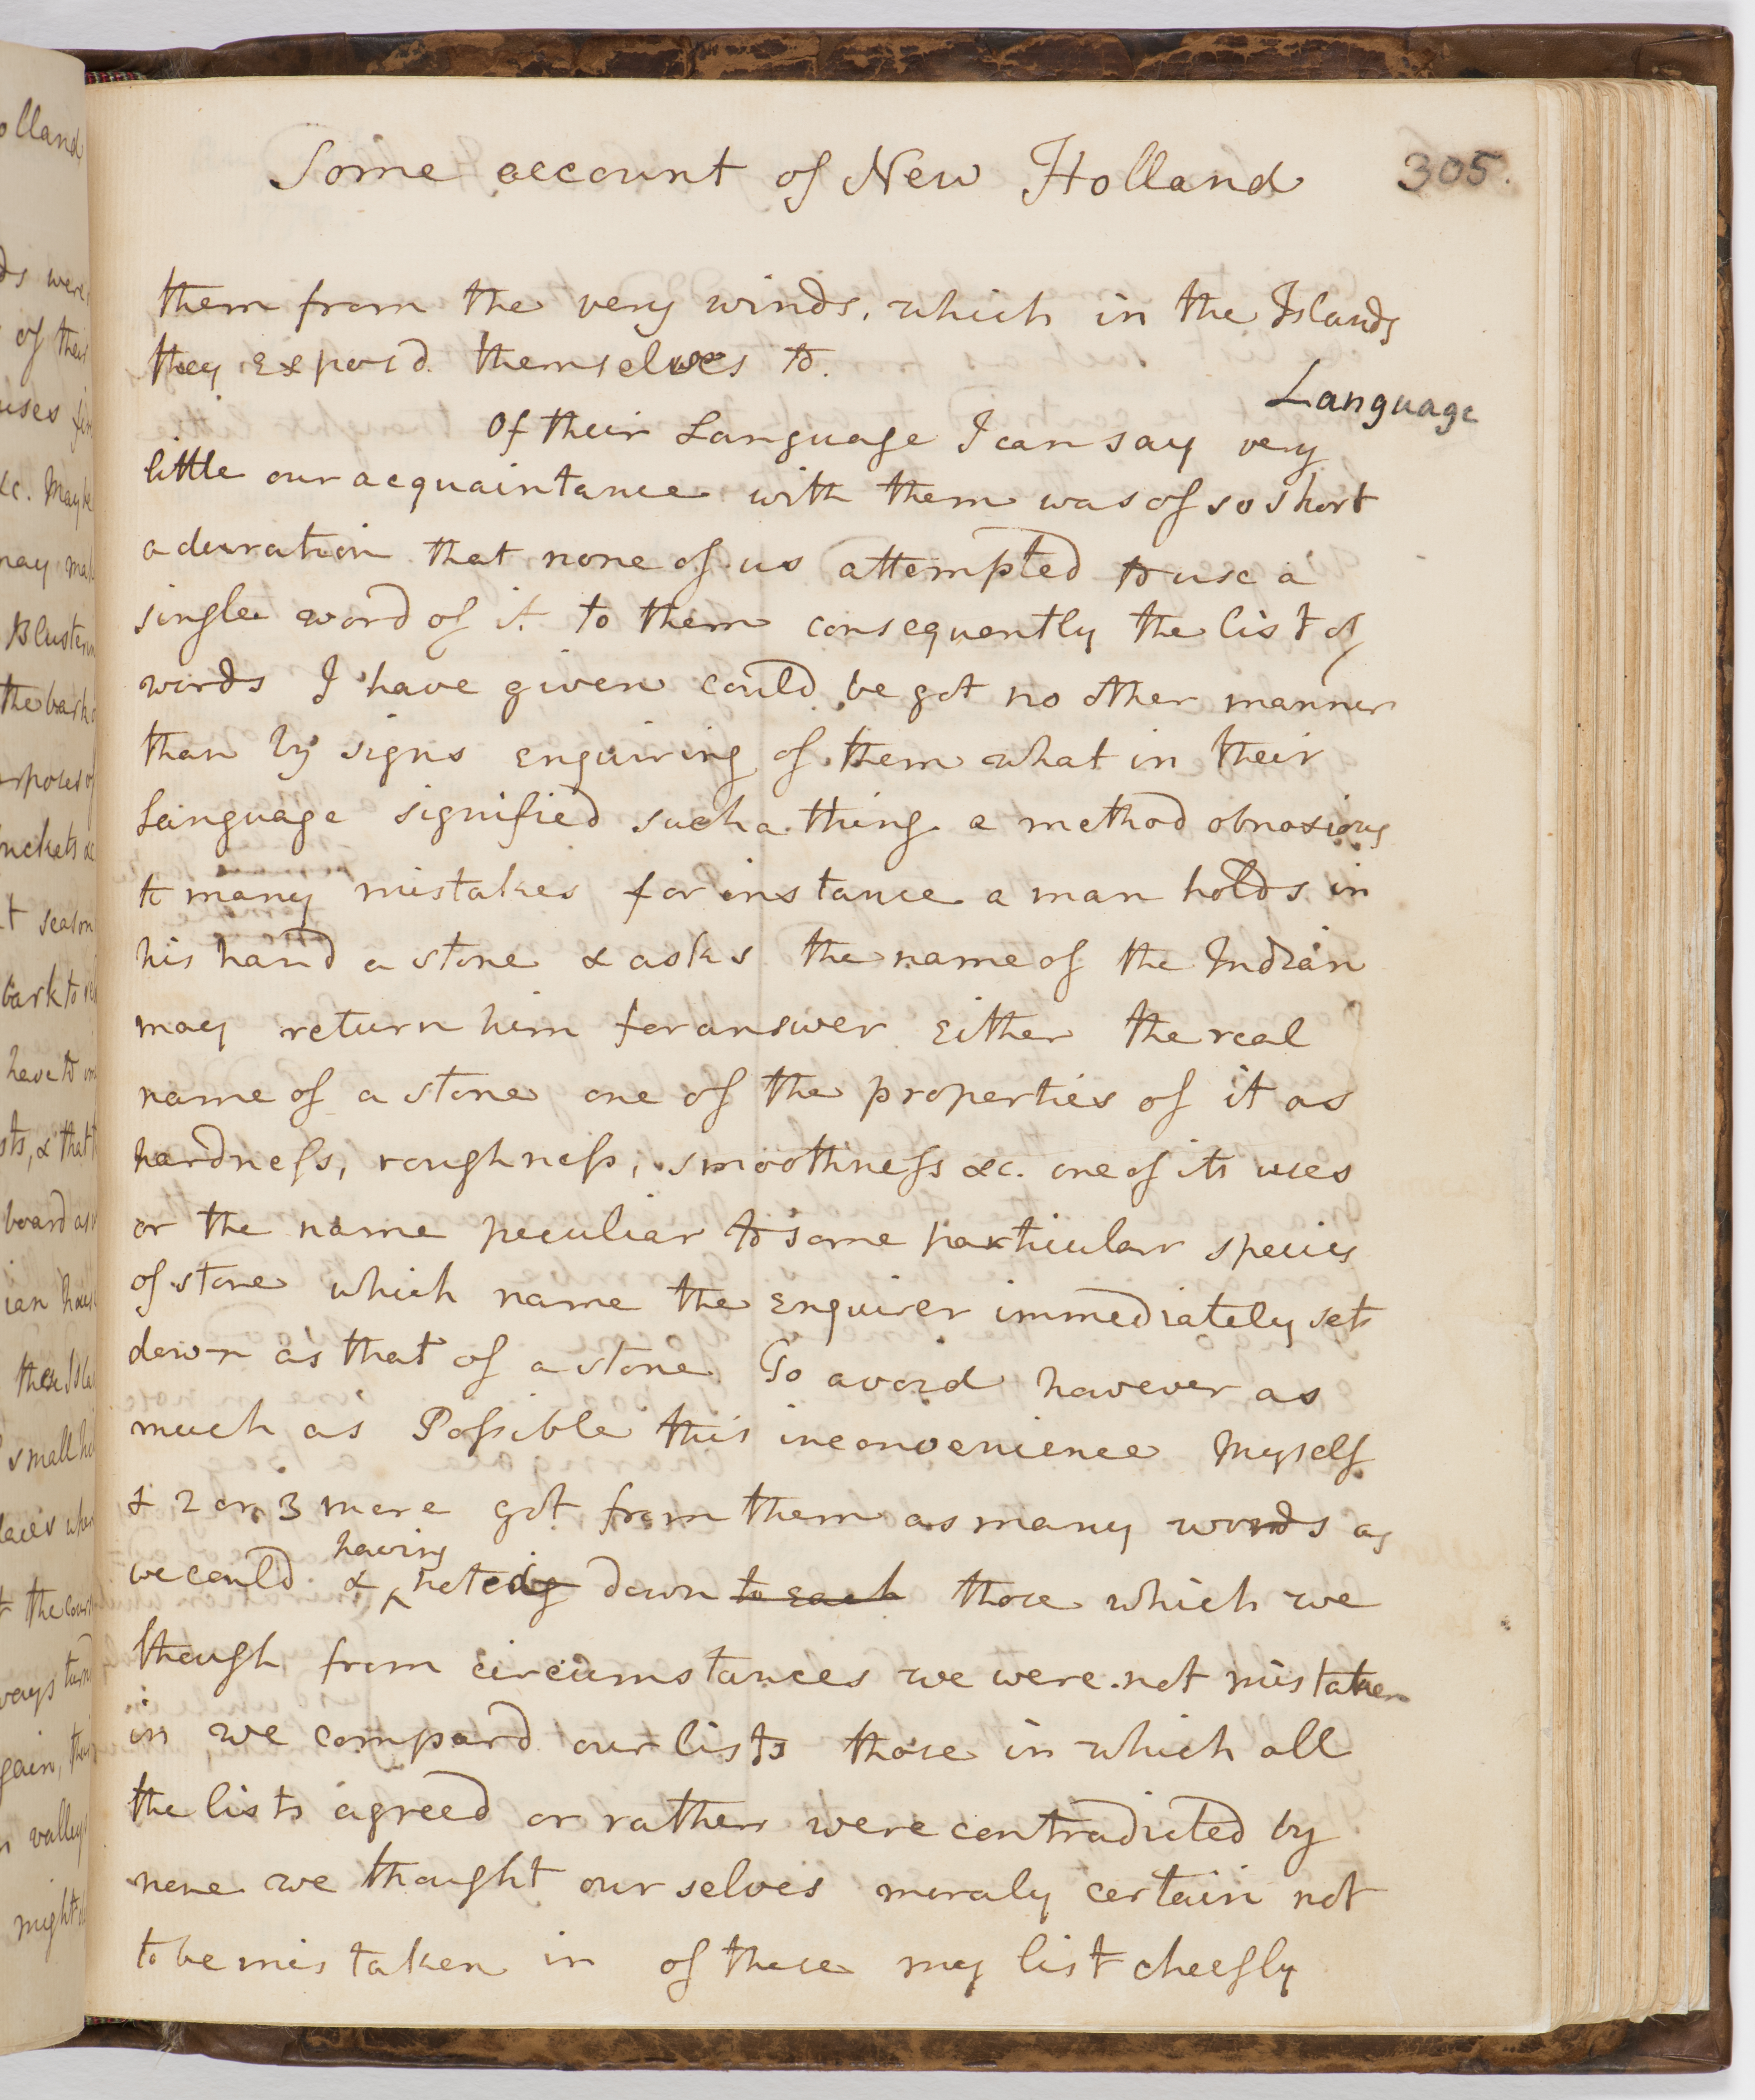 Some account of New Holland 305.
them from the very winds, which in the Islands
they exposd themselves to.
Language
Of their Language I can say very
little our acquaintance with them was of so short
a duration that none of us attempted to use a
single word of it to them consequently the list of
words I have given could be got no other manner
than by signs enquiring of them what in their
Language signified such a thing a method obnoxious
to many mistakes for instance a man holds in
his hand a stone & asks the name of the Indian
may return him for answer Either the real
name of a stone one of the properties of it as
hardness, roughness, smoothness &c. one of its uses
or the name peculiar to some particular species
of stone which name the enquirer immediately sets
down as that of a stone To avoid however as
much as Possible this inconvenience Myself
& 2 or 3 more got from them as many words as
having
we could & noted down to each those which we
though from circumstances we were not mistaken
in we compard our lists those in which all
the lists agreed or rather were contradicted by
none we thought our selves moraly certain not
to be mistaken in of these my list cheefly